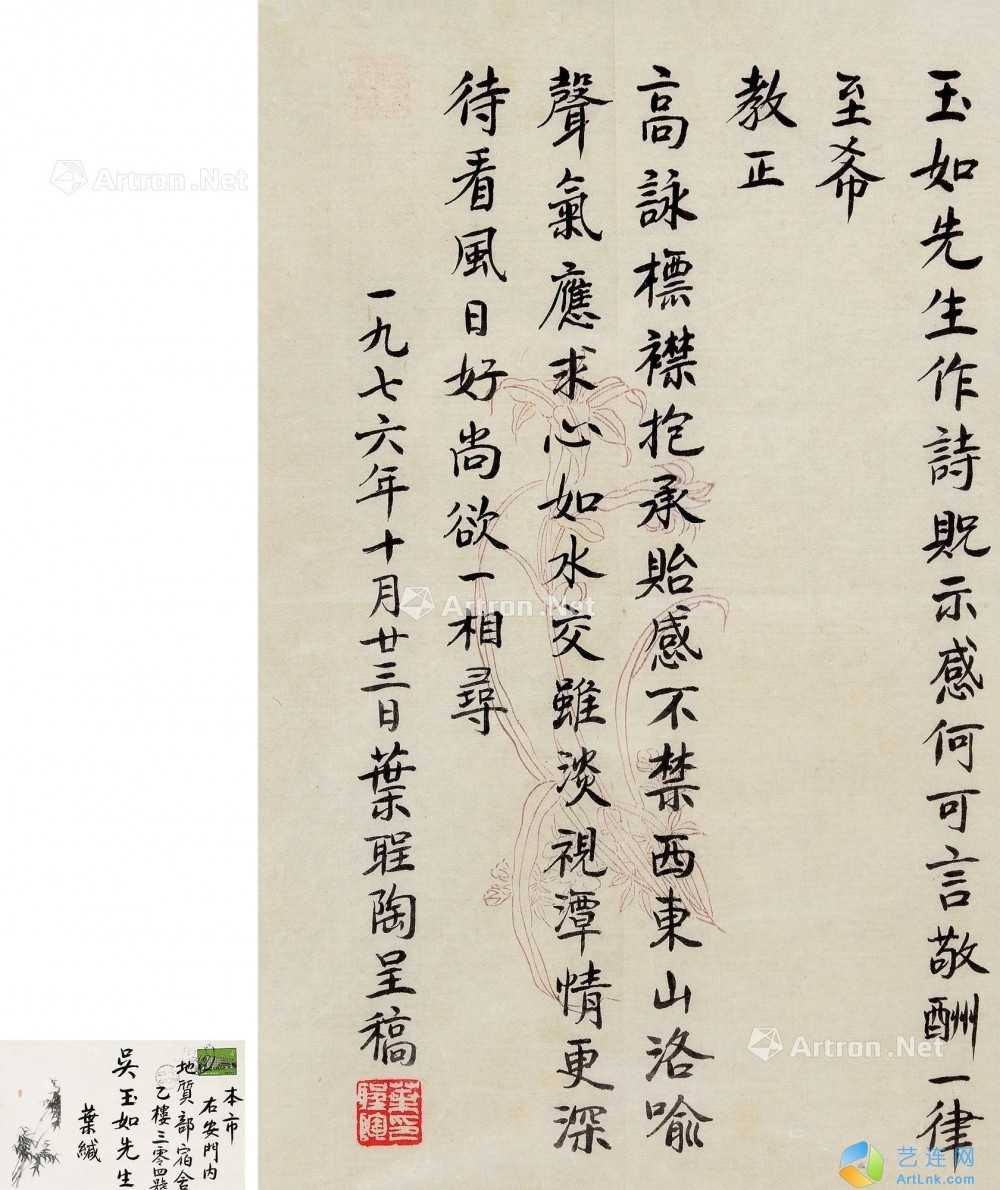 玉如先生作詩貺示感何可言敬酬一律
至希
教正
高詠標襟抱承貽感不禁西東山洛喻
聲氣應求心如水交雖淡視潭情更深
待看風日好尚欲一相尋
一九七六年十月廿三日葉聖陶呈稿
葉印聖陶
本市
右安門内
地質部宿舍
乙樓三零四號
吳玉如先生
葉緘
Artron.Net
Artron.Net
Artron.Net
艺连网
ArtLnk.com